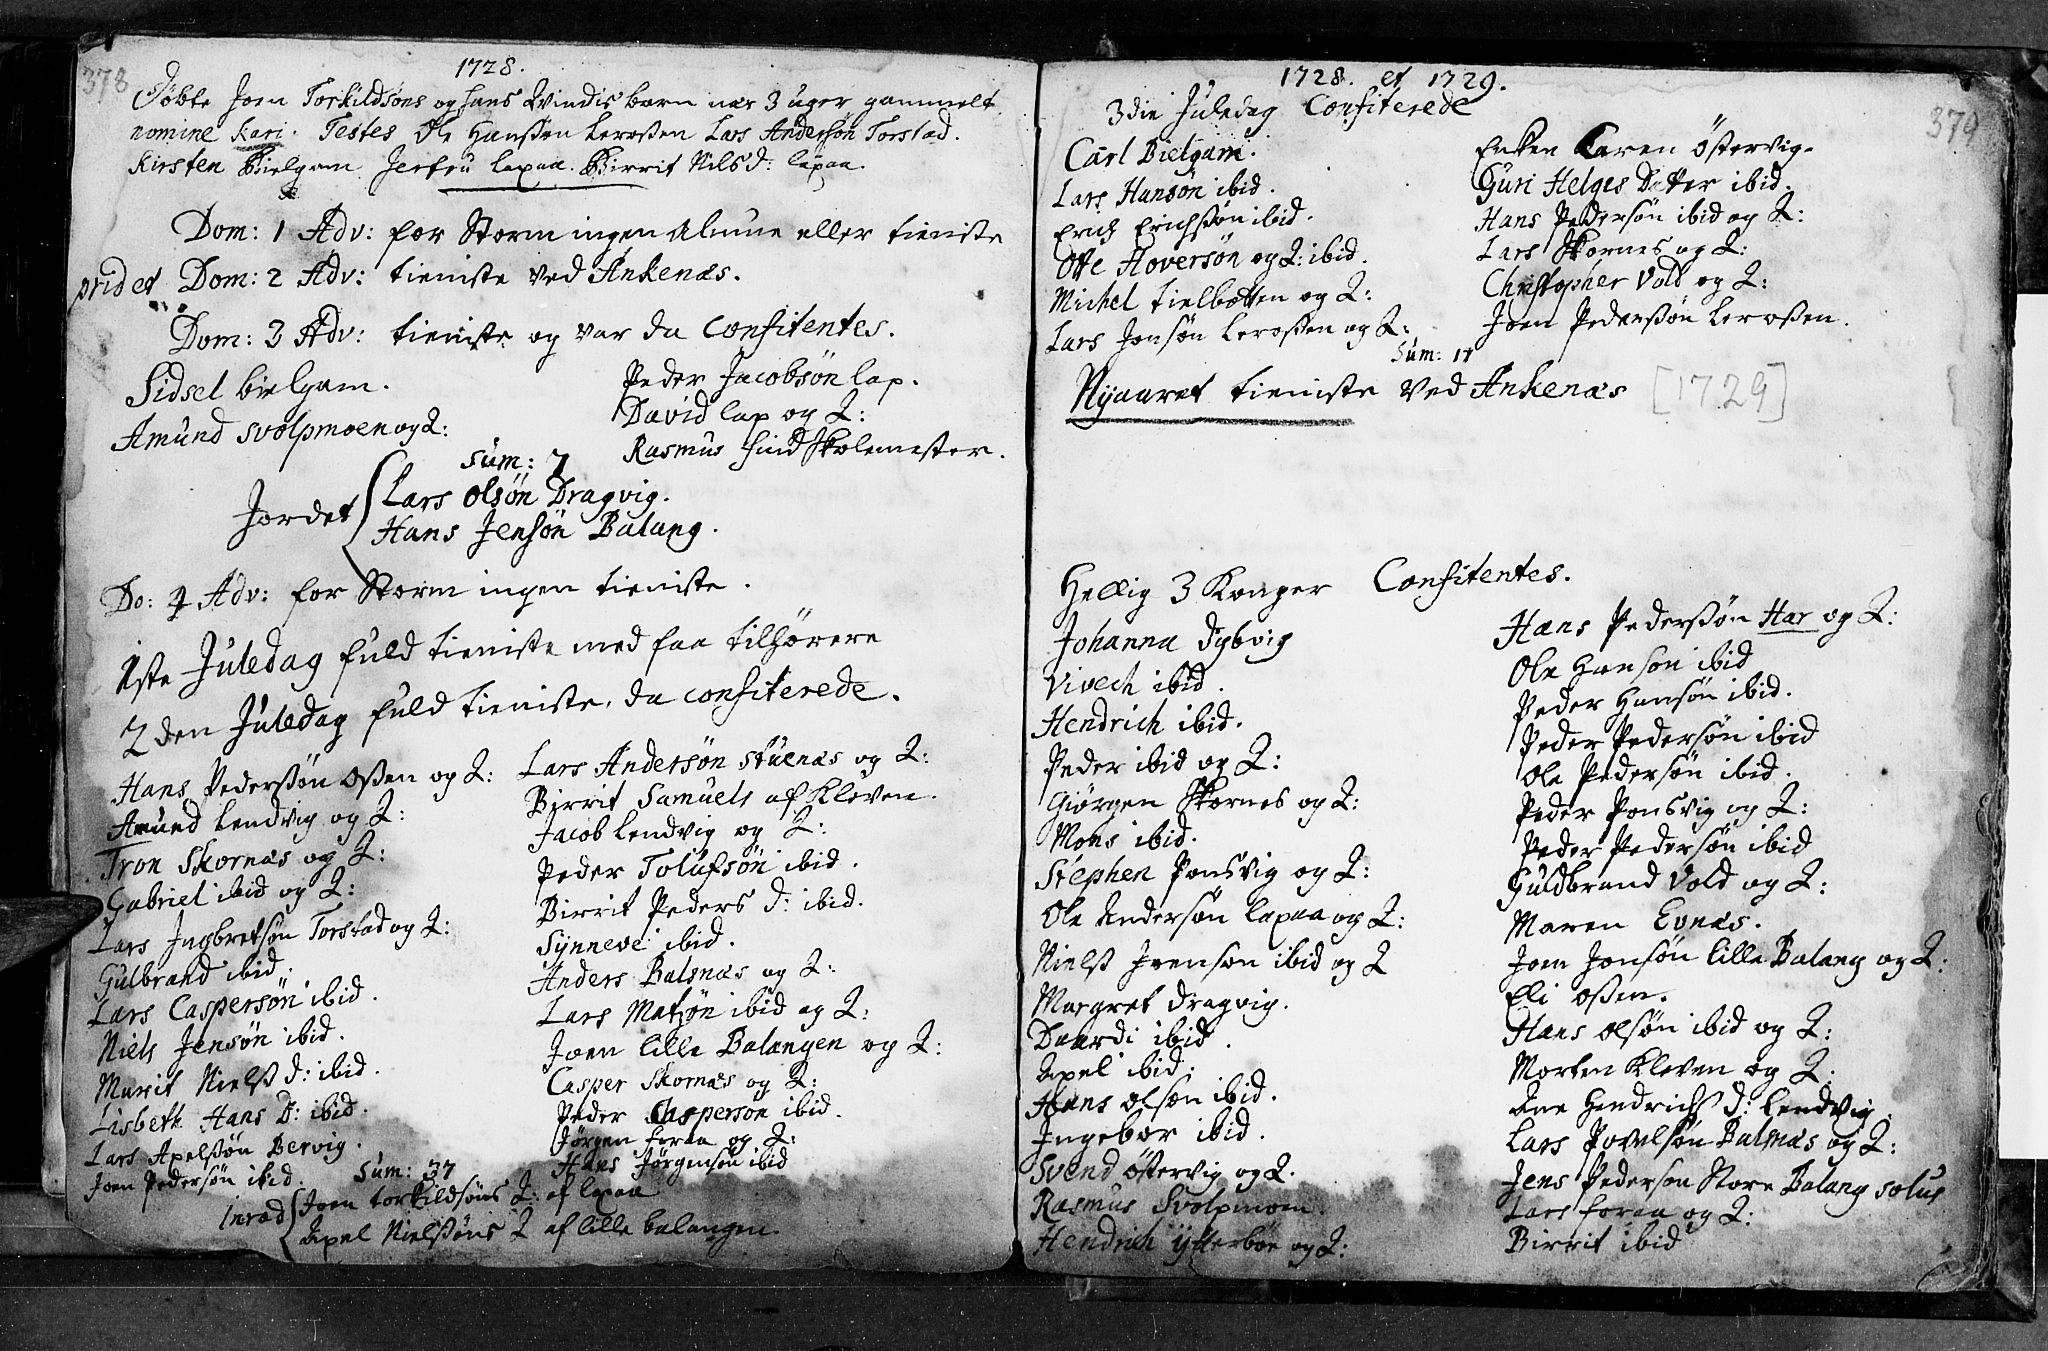 378
1728.
Döbte Joen Torkildsöns og hans Qvindis barn nær 3 uger gammelt
nomine Kari. Testes Ole Hanssen Lerossen Lars Andersön Torstad.
Kirsten Bielgam Jertru Lapaa. Birrit Nils D: lapaa.
Dom: 1 Adv: for Storm ingen Almue eller tieniste
prid et Dom: 2 Adv: tieniste ved Ankenæs.
Dom: 3 Adv: tieniste og var da Confitentes.
Sidsel bielgam.
Amund svolpmoen og Q:
Peder Jacobsön lap.
David lap og Q:
Rasmus hind Skolemester.
Sum: 7
Jordet
Lars Olsön Dragvig.
Hans Jensön Balang.
Do: 4 Adv: for Storm ingen tieniste.
1ste Juledag fuld tieniste med faa tilhörere
2den Juledag fuld tieniste, da confiterede.
Hans Pederssön Ossen og Q:
Amund Lendvig og Q:
Tron Skornæs og Q:
Gabriel ibid og Q:
Lars Ingbretsön Torstad og Q:
Gulbrand ibid.
Lars Caspersön ibid.
Niels Jensön ibid.
Marit Nielss D: ibid.
Lisbeth Hans D: ibid.
Lars Apelssön Bervig.
Joen Pedersön ibid.
Lars Andersön stuenæs og Q:
Birrit Samuels af Kleven.
Jacob Lendvig og Q:
Peder Tolufsön ibid.
Birrit Peders D: ibid.
Synneve ibid.
Anders Balsnæs og Q:
Lars Matsön ibid og Q:
Joen lille Balangen og Q:
Casper Skornæs og Q:
Peder Casperson ibid.
Jörgen foraa og Q:
Hans Jörgensön ibid
Sum: 37
Inred
Joen torkildsöns Q: af lapaa
Apel Nielssöns Q af lille balangen.
379
1728. et 1729.
3die Juledag Confiterede
Carl Bielgam.
Lars Hansön ibid.
Erich Erichssön ibid.
Otte Hoversön og Q: ibid.
Michel tielbotten og Q:
Lars Jonsön Lerossen og Q:
Enken Karen Östervig.
Guri Helges Datter ibid.
Hans Pedersön ibid og Q:
Lars Skornes og Q:
Christopher Vold og Q:
Joen Pederssön Lerossen.
Sum: 17
Nyaaret tieniste ved Ankenæs [1729]
Hellig 3 Konger Confitentes.
Johanna Dybvig
Vivech ibid.
Hendrich ibid.
Peder ibid og Q:
Giörgen Skornes og Q:
Mons ibid.
Stephen Ponsvig og Q:
Ole Andersön lapaa og Q:
Nielss Ivenson ibid og Q
Margret Dragvig.
Daardi ibid.
Apel ibid.
Hans olson ibid.
Ingebor ibid.
Svend Östervig og Q.
Rasmus Svolpmoen.
Hendrich ytterböe og Q:
Hans Pederssön Har og Q:
Ole Hanson ibid
Peder Hansön ibid.
Peder Pedersön ibid
Ole Pedersön ibid.
Peder Ponsvig og Q:
Peder Pedersön ibid
Guldbrand Vold og Q:
Maren Evnæs.
Joen Jonsön lille Balang og Q:
Eli Ossen.
Hans olsön ibid og Q:
Morten Kleven og Q.
Ane Hendrichs D: Lendvig.
Lars Povelsön Balsnæs og Q:
Jens Pederson Store Balang solus
Lars foraa og Q:
Birrit ibid